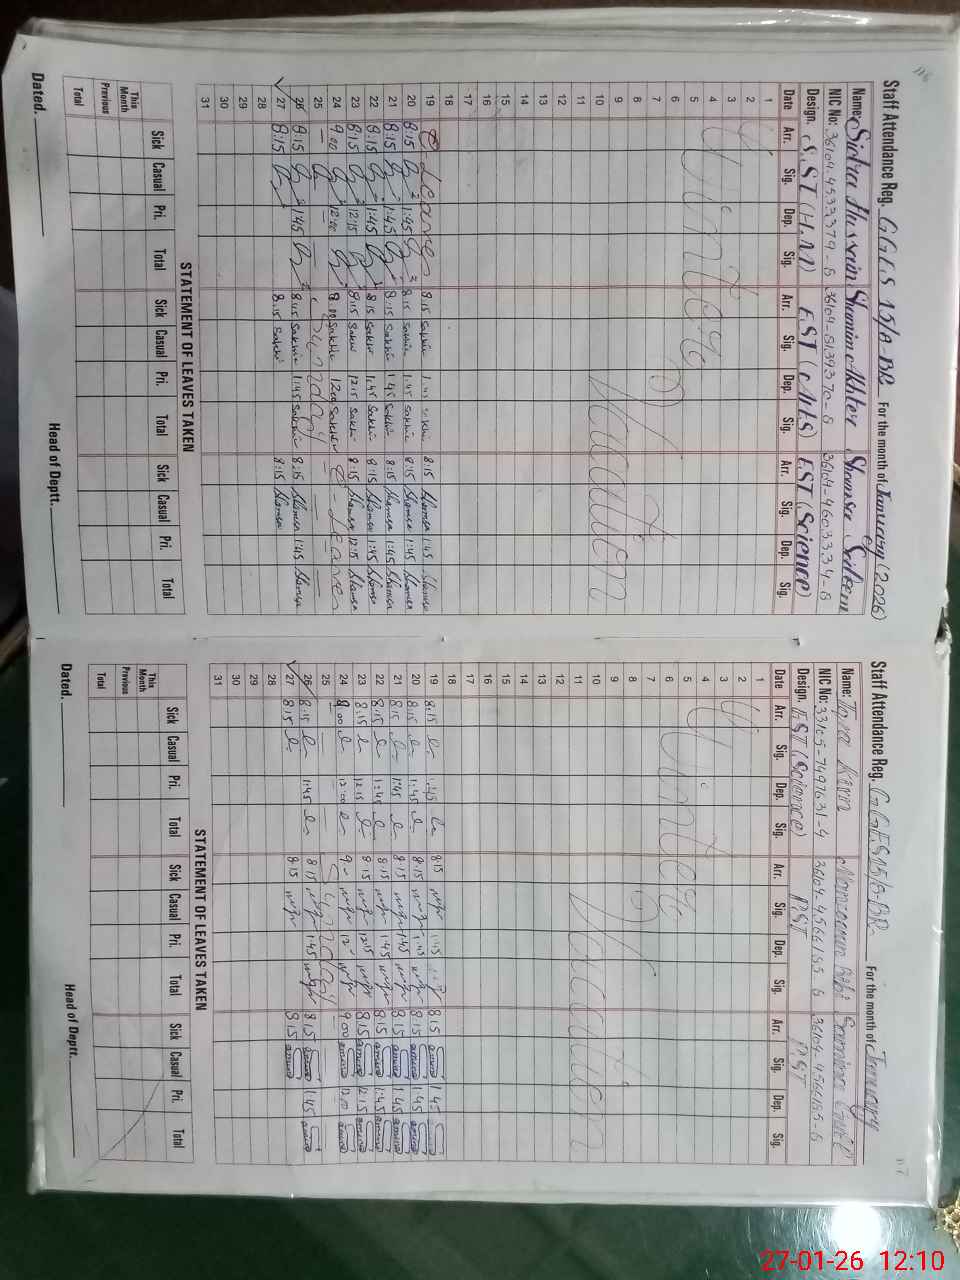 116
Staff Attendance Reg. GGES 15/A-BR For the month of January (2026)
Name: Sidra Hussain Shamim Akhter Shamsa Saleem
NIC No: 36104-4533379-8 36104-8139370-8 36104-4603334-8
Design. S.ST (H.M) EST (AHS) EST (Science)
Date Arr. Sig. Dep. Sig. Arr. Sig. Dep. Sig. Arr. Sig. Dep. Sig.
1
2
3
4
5
6
7
8
9
10
11
12
13
14
15
16
17
18
Winter Vacation
19 C-Leave 8:15 Sakhi 1:45 Sakhi 8:15 Shamsa 1:45 Shamsa
20 8:15 1:45 8:15 Sakhi 1:45 Sakhi 8:15 Shamsa 1:45 Shamsa
21 8:15 1:45 8:15 Sakhi 1:45 Sakhi 8:15 Shamsa 1:45 Shamsa
22 8:15 1:45 8:15 Sakhi 1:45 Sakhi 8:15 Shamsa 1:45 Shamsa
23 8:15 12:15 8:15 Sakhi 12:15 Sakhi 8:15 Shamsa 12:15 Shamsa
24 9:00 12:00 9:00 Sakhi 12:00 Sakhi C-Leave
25 Sunday
26 8:15 1:45 8:15 Sakhi 1:45 Sakhi 8:15 Shamsa 1:45 Shamsa
27 8:15 8:15 Sakhi 8:15 Shamsa
28
29
30
31
STATEMENT OF LEAVES TAKEN
Sick Casual Pri. Total Sick Casual Pri. Total Sick Casual Pri. Total
This Month
Previous
Total
Dated. Head of Deptt.
117
Staff Attendance Reg. GGES 15/A-BR For the month of January
Name:
NIC No: 33105-7497631-4 36104-4566155-8 36104-4566185-8
Design. EST (Science) PST PST
Date Arr. Sig. Dep. Sig. Arr. Sig. Dep. Sig. Arr. Sig. Dep. Sig.
1
2
3
4
5
6
7
8
9
10
11
12
13
14
15
16
17
18
Winter Vacation
19 8:15 1:45 8:15 1:45 8:15 1:45
20 8:15 1:45 8:15 1:45 8:15 1:45
21 8:15 1:45 8:15 1:45 8:15 1:45
22 8:15 1:45 8:15 1:45 8:15 1:45
23 8:15 12:15 8:15 12:15 8:15 12:15
24 9:00 12:00 9:00 12 9:00 12:00
25 Sunday
26 8:15 1:45 8:15 1:45 8:15 1:45
27 8:15 8:15 8:15
28
29
30
31
STATEMENT OF LEAVES TAKEN
Sick Casual Pri. Total Sick Casual Pri. Total Sick Casual Pri. Total
This Month
Previous
Total
Dated. Head of Deptt.
27-01-26 12:10